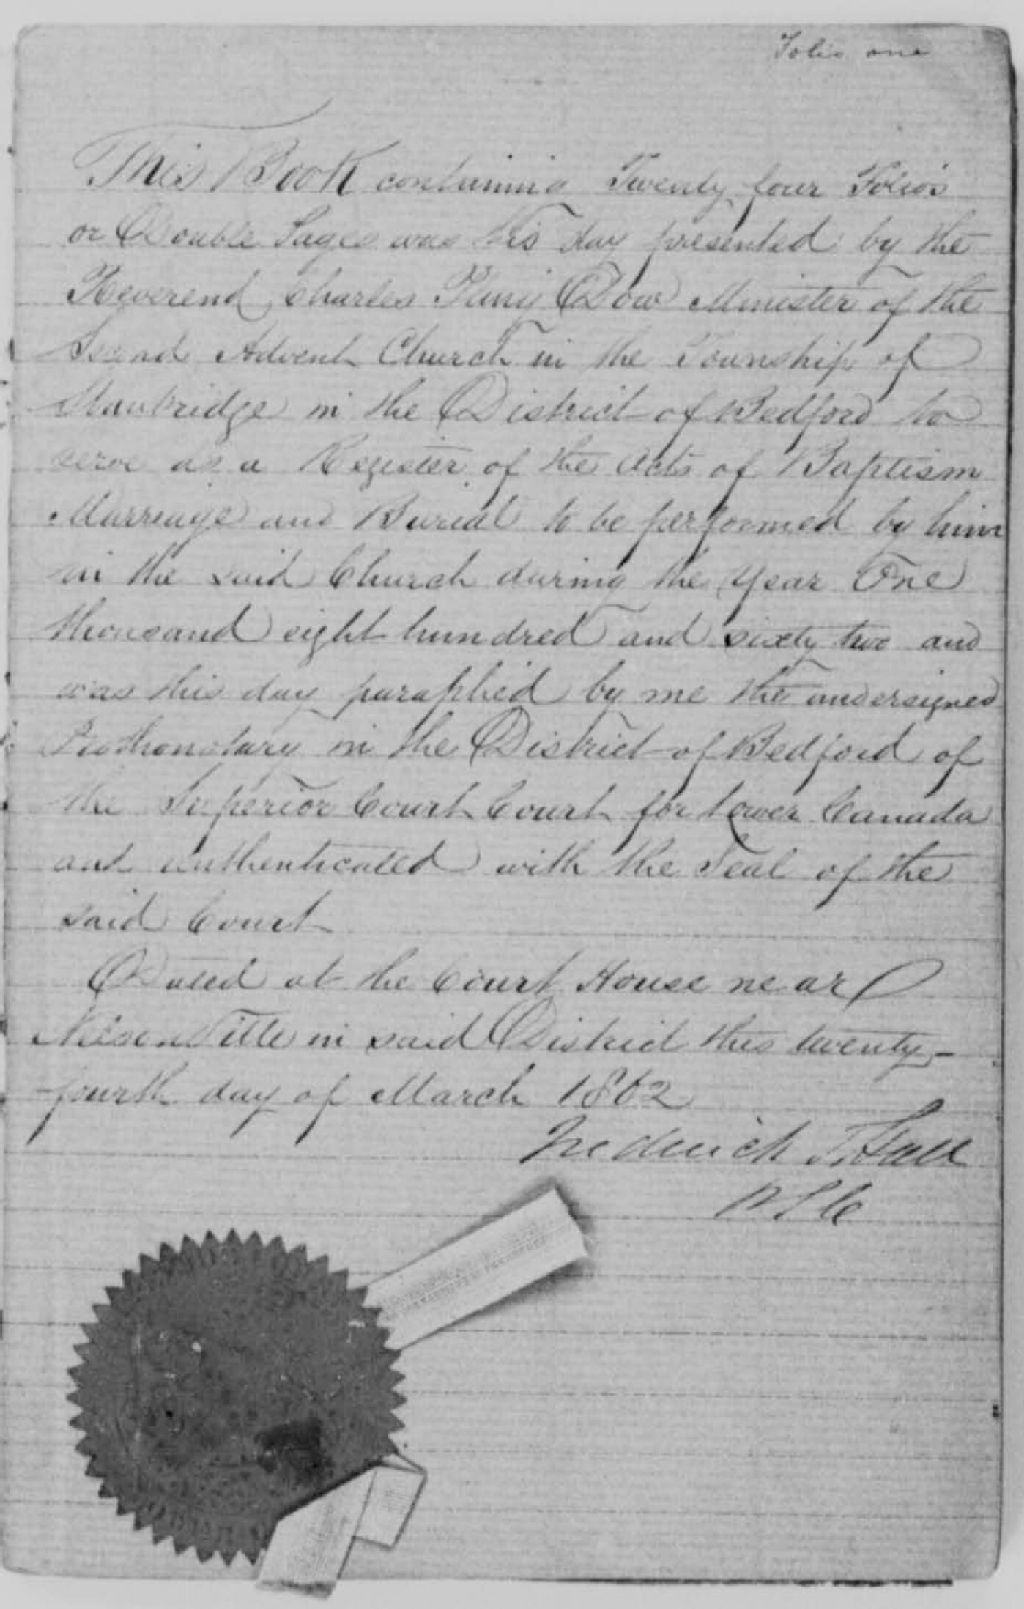 Folio one
This Book containing Twenty four Folios
or Double Pages was this day presented by the
Reverend Charles Pliny Dow Minister of the
Second Advent Church in the Township of
Stanbridge in the District of Bedford to
serve as a Register of the Acts of Baptism
Marriage and Burial to be performed by him
in the said Church during the year One
thousand eight hundred and sixty two and
was this day paraphed by me the undersigned
Prothonotary in the District of Bedford of
the Superior Court Court for Lower Canada
and authenticated with the Seal of the
said Court
Dated at the Court House near
Nelsonville in said District this twenty-
fourth day of March 1862
Frederick T. Hall
P S C